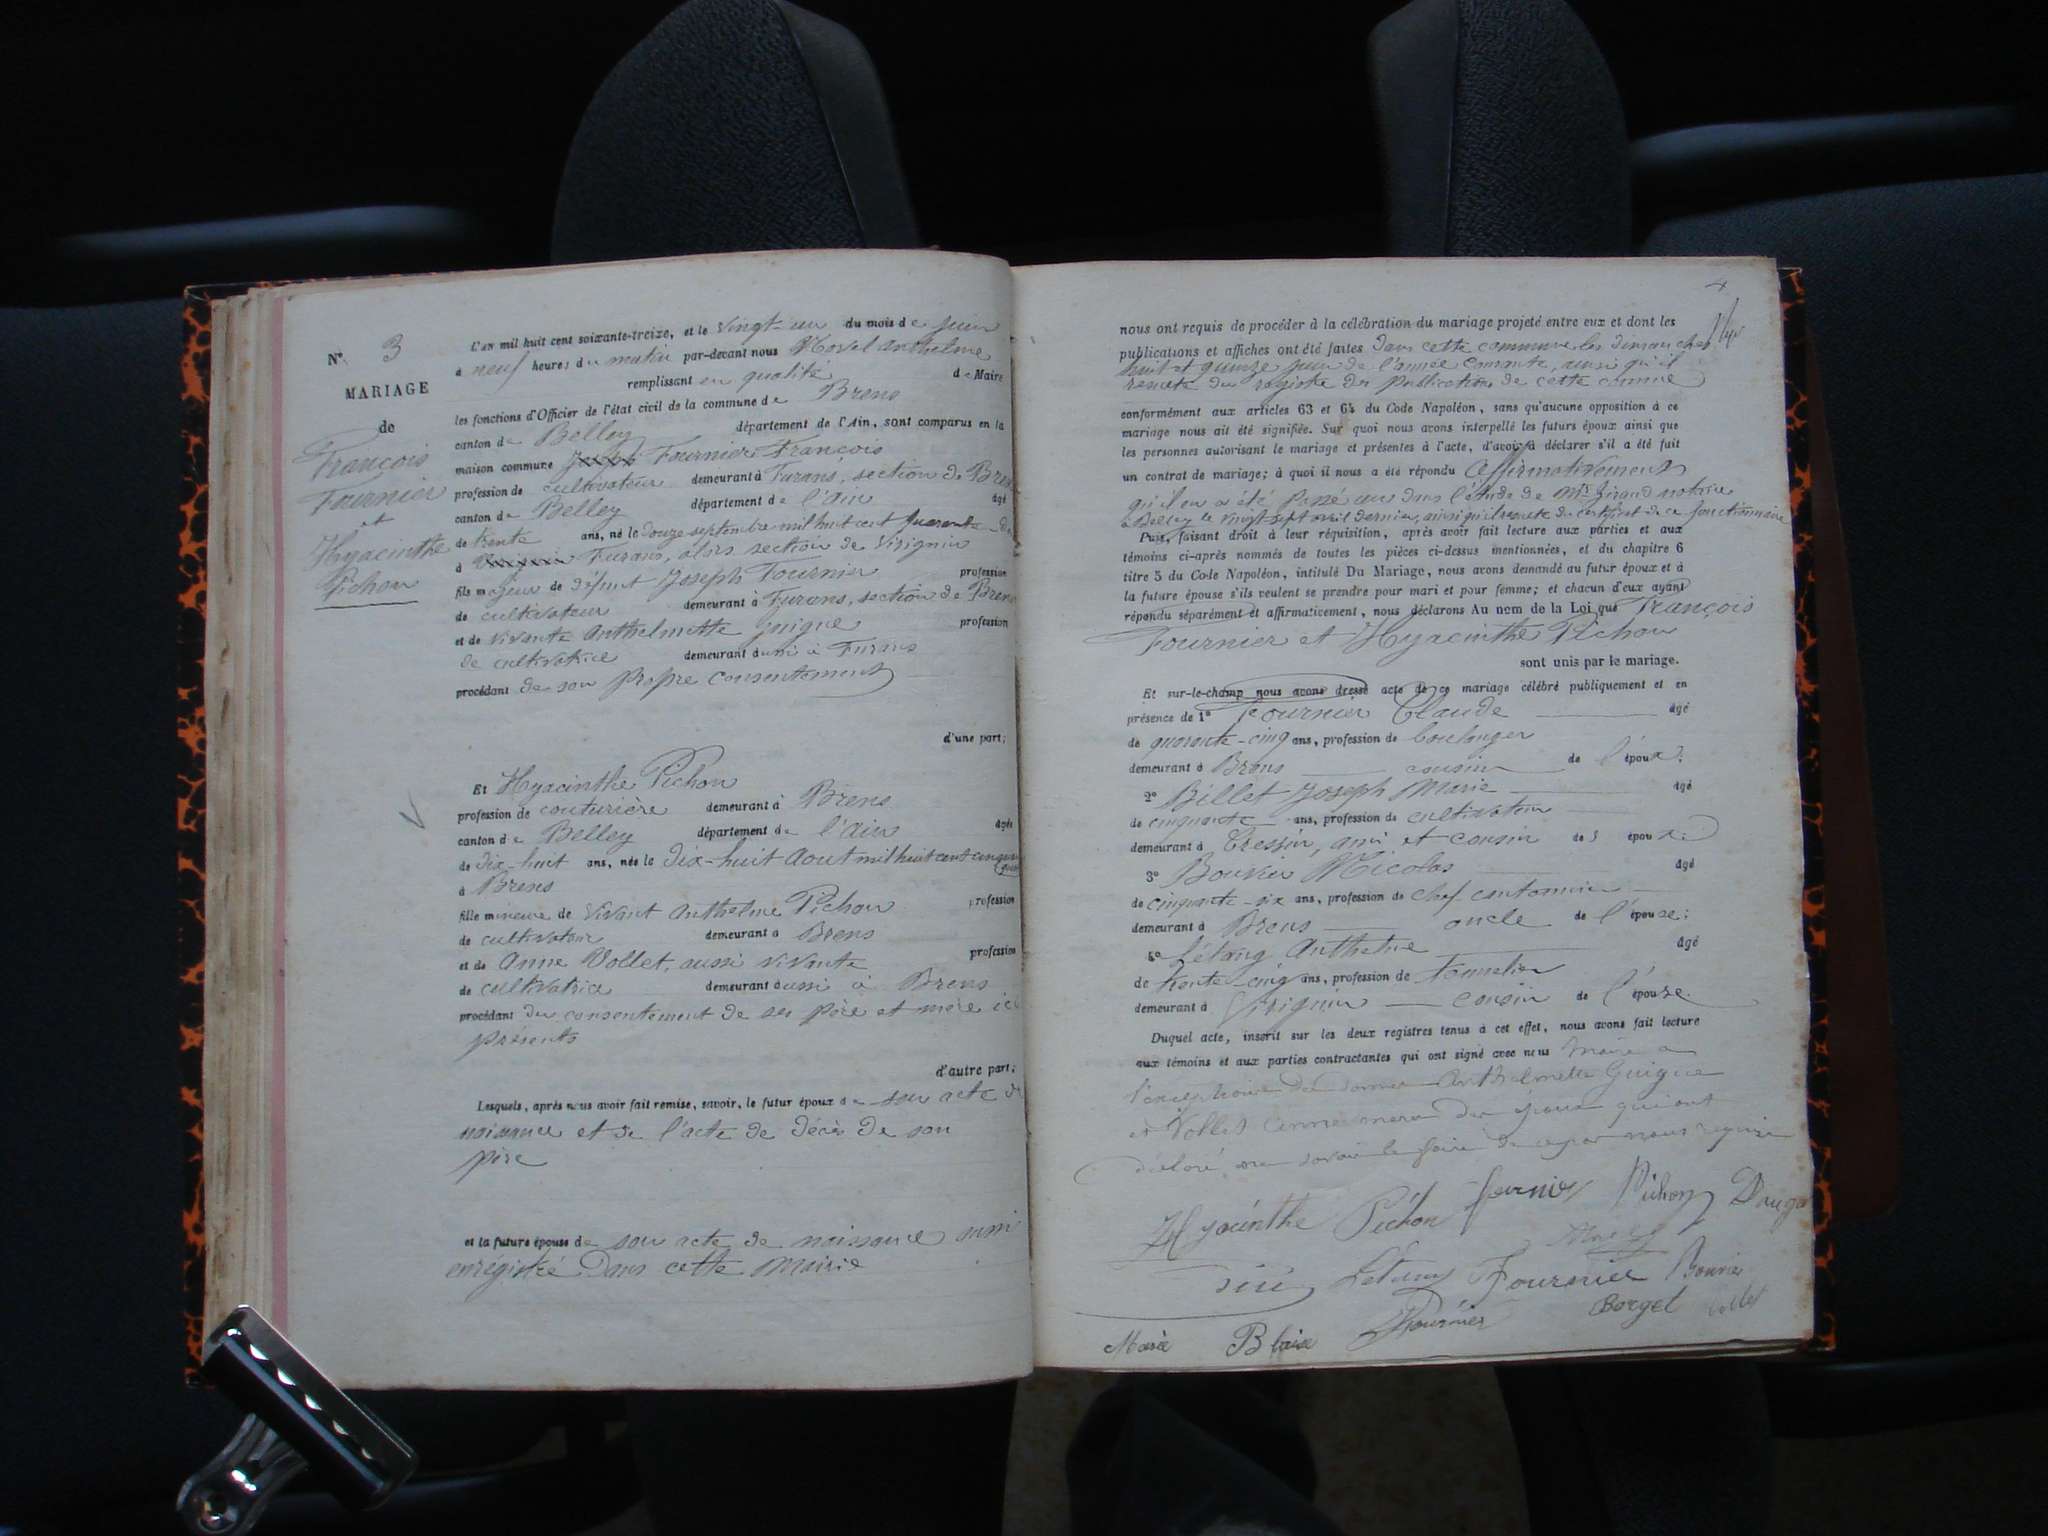 N° 3
MARIAGE
de
François
Fournier
et
Hyacinthe
Pichon
L'an mil huit cent soixante-treize, et le vingt-un du mois de juin
à neuf heures du matin par-devant nous Morel Anthelme
remplissant en qualité de Maire
les fonctions d'Officier de l'état civil de la commune de Brens
canton de Belley département de l'Ain, sont comparus en la
maison commune Fournier François
profession de cultivateur demeurant à Furans, section de Brens
canton de Belley département de l'ain âgé
de trente ans, né le douze septembre mil huit cent quarante-
à Furans, alors section de Virignin
fils majeur de défunt Joseph Fournier profession
de cultivateur demeurant à Furans, section de Brens
et de vivante Anthelmette Guigue profession
de cultivatrice demeurant aussi à Furans
procédant de son propre consentement
d'une part;
Et Hyacinthe Pichon
profession de couturière demeurant à Brens
canton de Belley département de l'ain âgée
de dix-huit ans, née le dix-huit Aout mil huit cent
à Brens
fille mineure de vivant Anthelme Pichon profession
de cultivateur demeurant à Brens
et de Anne Vollet, aussi vivante profession
de cultivatrice demeurant aussi à Brens
procédant du consentement de ses père et mère ici
présents
d'autre part;
Lesquels, après nous avoir fait remise, savoir, le futur époux de son acte de
naissance et de l'acte de décès de son
père
et la future épouse de son acte de naissance aussi
enregistré dans cette Mairie
4
nous ont requis de procéder à la célébration du mariage projeté entre eux et dont les
publications et affiches ont été faites dans cette commune les dimanches
huit et quinze juin de l'année courante, ainsi qu'il
resulte du registre de publication de cette comune
conformément aux articles 63 et 64 du Code Napoléon, sans qu'aucune opposition à ce
mariage nous ait été signifiée. Sur quoi nous avons interpellé les futurs époux ainsi que
les personnes autorisant le mariage et présentes à l'acte, d'avoir à déclarer s'il a été fait
un contrat de mariage; à quoi il nous a été répondu affirmativement
qu'il en a été passé un dans l'étude de notaire
à Belley le vingt sept avril dernier, ainsi qu'il resulte du certificat de ce fonctionnaire
Puis, faisant droit à leur réquisition, après avoir fait lecture aux parties et aux
témoins ci-après nommés de toutes les pièces ci-dessus mentionnées, et du chapitre 6
titre 5 du Code Napoléon, intitulé Du Mariage, nous avons demandé au futur époux et à
la future épouse s'ils veulent se prendre pour mari et pour femme; et chacun d'eux ayant
répondu séparément et affirmativement, nous déclarons Au nom de la Loi que François
Fournier et Hyacinthe Pichon
sont unis par le mariage.
Et sur-le-champ nous avons dressé acte de ce mariage célébré publiquement et en
présence de 1° Fournier Claude âgé
de quarante-cinq ans, profession de boulanger
demeurant à Brens cousin de l'époux;
2° Billet Joseph Marie âgé
de cinquante ans, profession de cultivateur
demeurant à Cressin, ami et cousin de l'époux;
3° Bouvier Nicolas âgé
de cinquante-six ans, profession de chef cantonnier
demeurant à Brens oncle de l'épouse;
4° Létang Anthelme âgé
de trente-cinq ans, profession de tonnelier
demeurant à Virignin cousin de l'épouse.
Duquel acte, inscrit sur les deux registres tenus à cet effet, nous avons fait lecture
aux témoins et aux parties contractantes qui ont signé avec nous Maire a
l'exception de dames Anthelmette Guigue
et Vollet Anne mere des époux qui ont
déclaré ne savoir le faire de ce par nous requise
Hyacinthe Pichon fournier Pichon
Morel
Létang Fournier Bouvier
Fournier Borgel Vollet
Marie Blaise